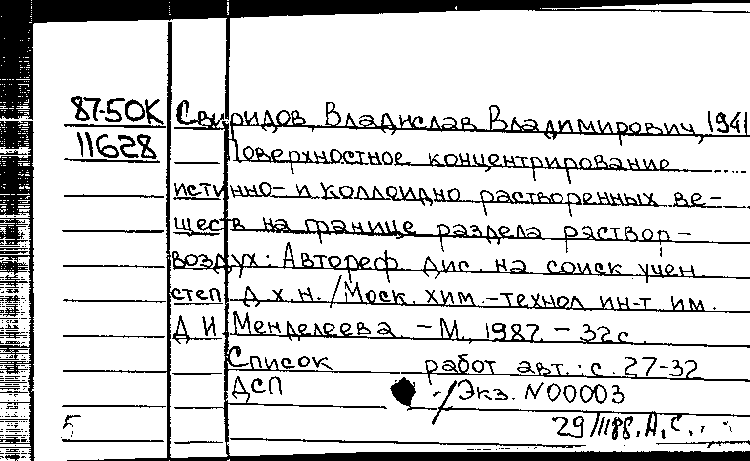 87-50К Свиридов, Владислав Владимирович, 1941
11628 Поверхностное концентрирование
истинно- и коллоидно растворенных ве-
ществ на границе раздела раствор-
воздух: Автореф. дис. на соиск учен.
степ. Д.х.н. /Моск. хим.-технол ин-т им.
Д.И. Менделеева. - М., 1987. - 32с.
Список работ авт.: с. 27-32
ДСП /Экз. N00003
5